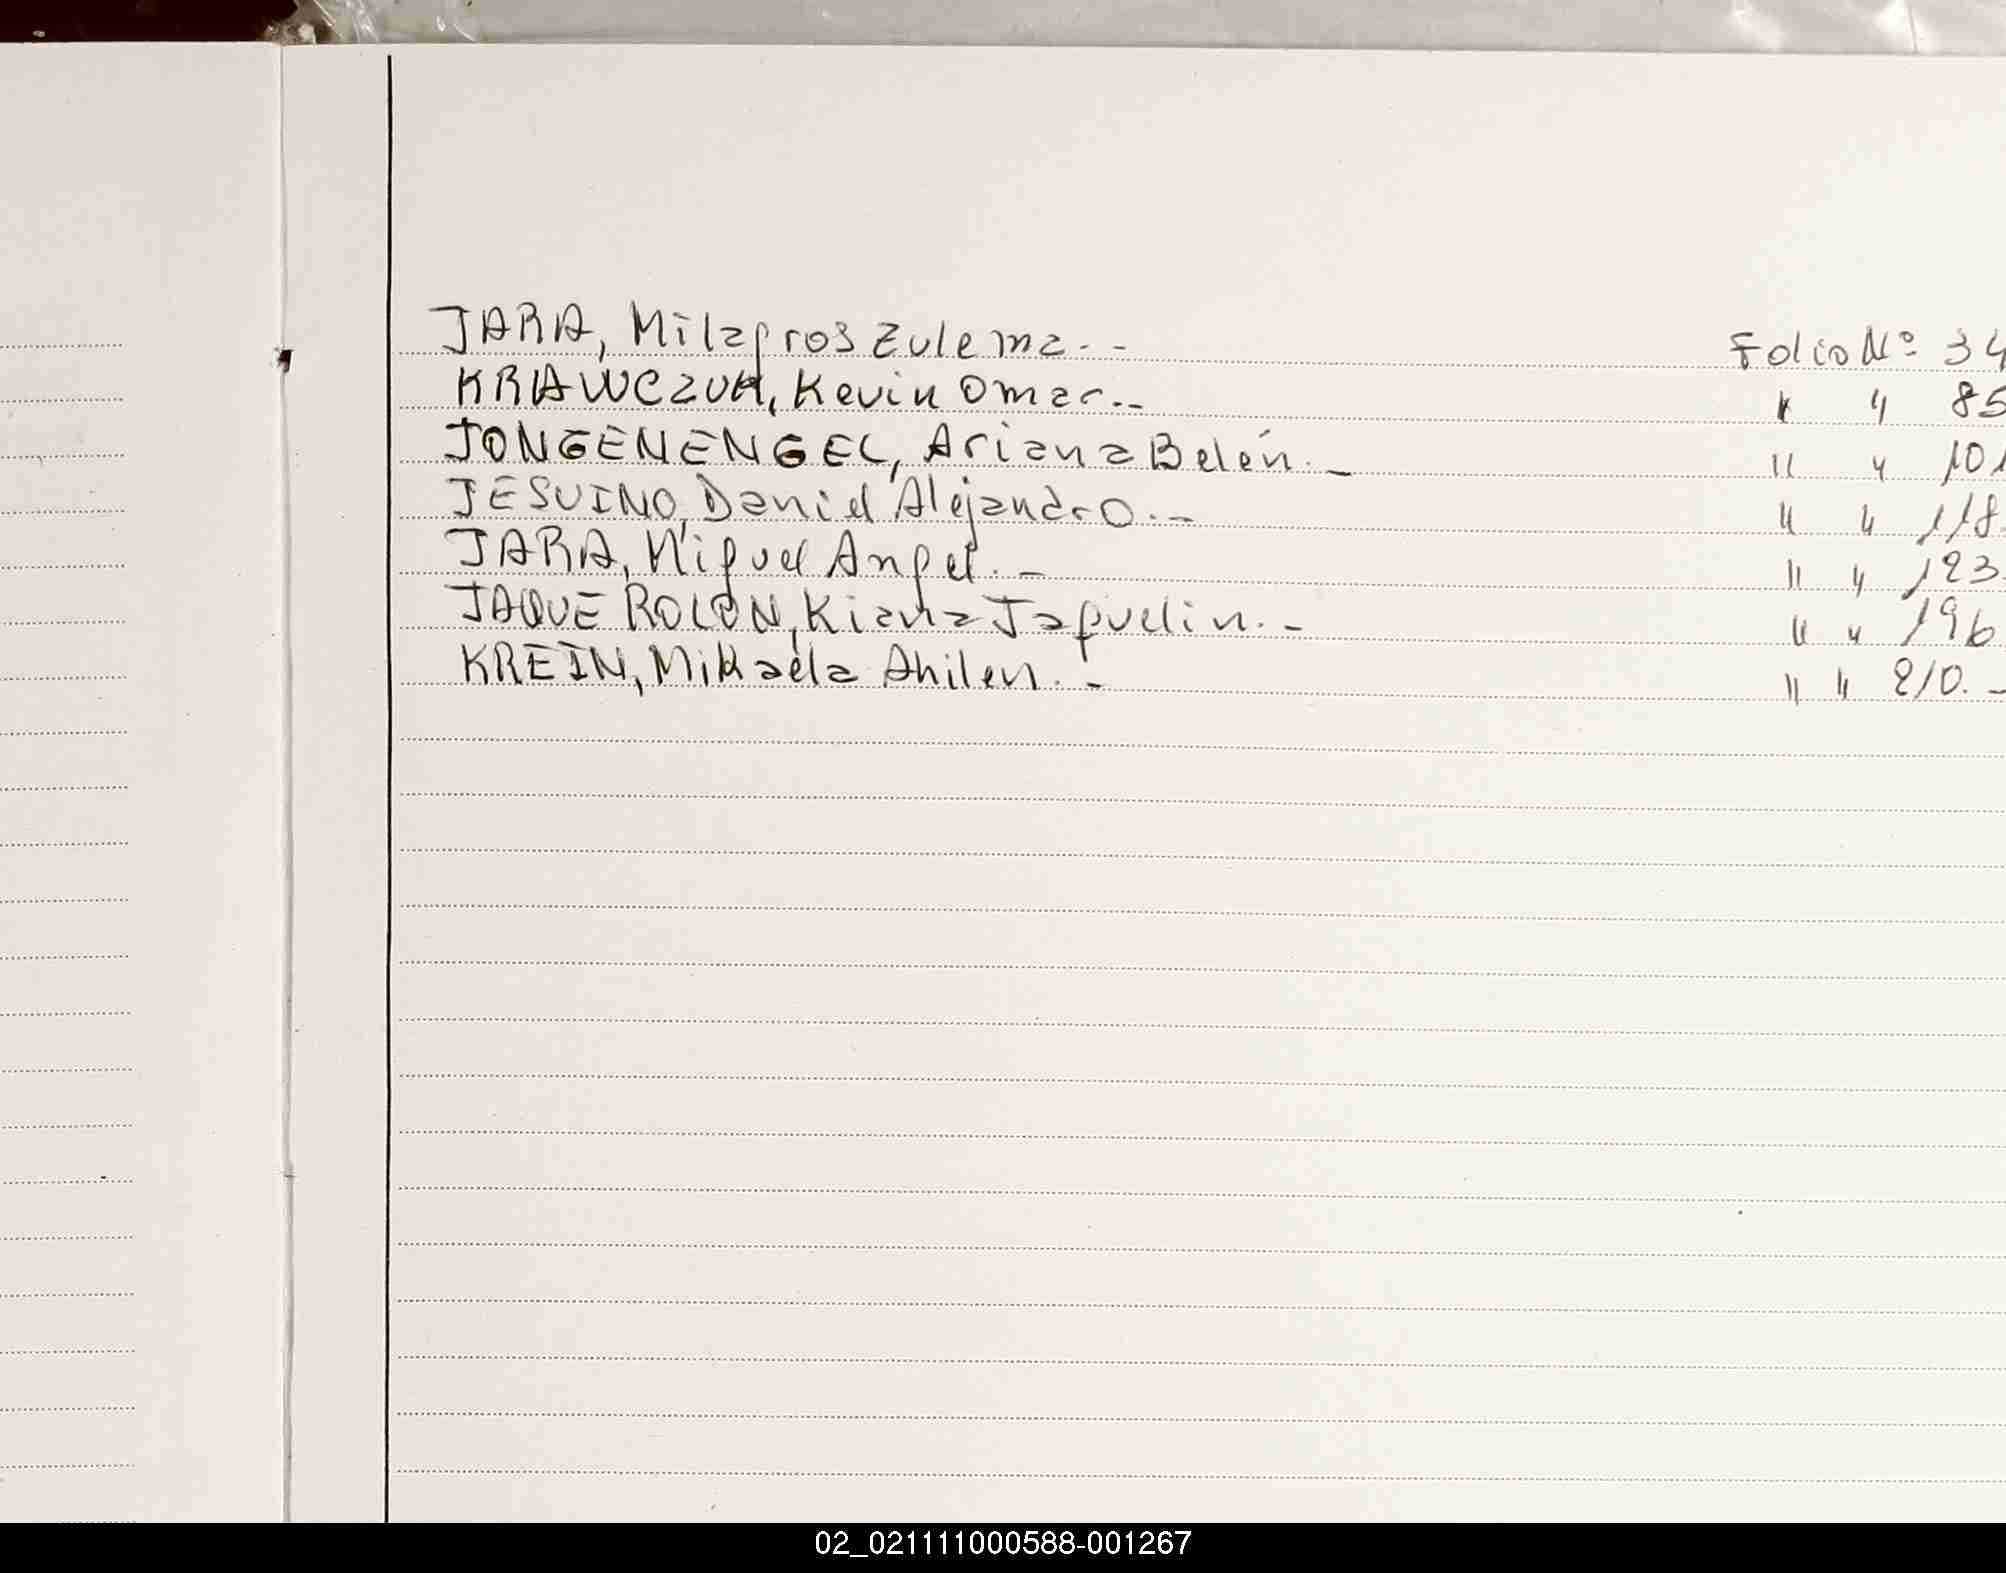 JARA, Milagros Zulema.-- Folio Nº 34
KRAWCZUK, Kevin Omar.-- " " 85
JONGENENGEL, Ariana Belén.- " " 101
JESUINO, Daniel Alejandro.- " " 118.
JARA, Miguel Angel.- " " 123.
JAQUE ROLON, Kiana Jaquelin.- " " 196
KREIN, Mikaela Ahilen.- " " 210.-
02_021111000588-001267